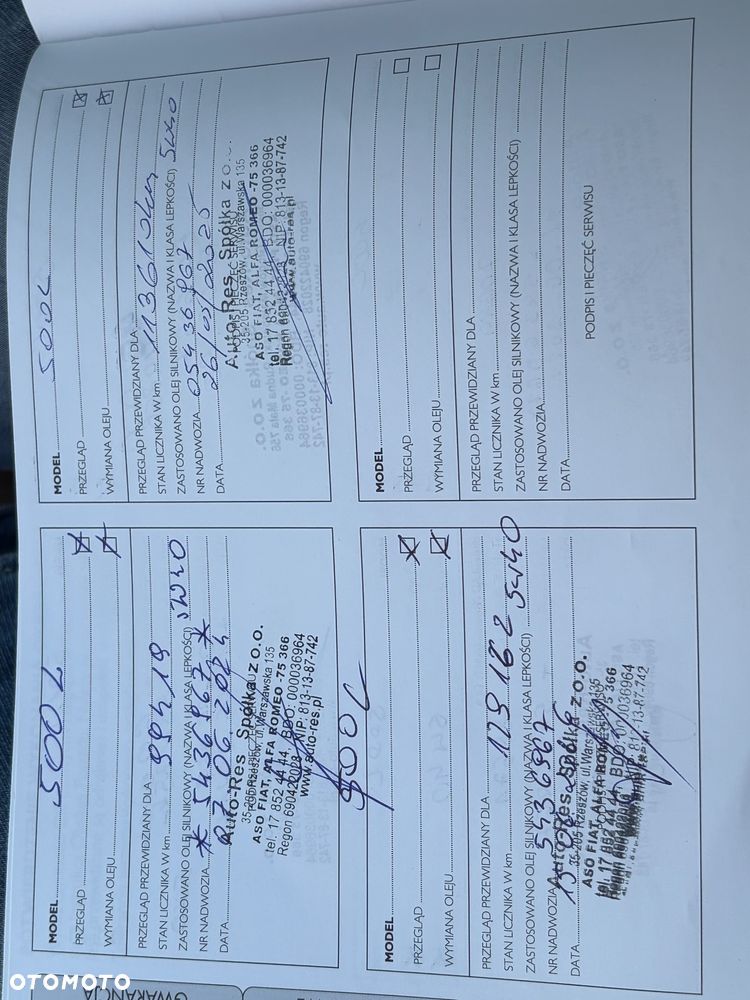 MODEL 500L
PRZEGLĄD
WYMIANA OLEJU
PRZEGLĄD PRZEWIDZIANY DLA
STAN LICZNIKA W km 99419
ZASTOSOWANO OLEJ SILNIKOWY (NAZWA I KLASA LEPKOŚCI) 5W40
NR NADWOZIA * 5436967 *
DATA 07 06 2024
Auto-Res Spółka z o.o.
35-205 Rzeszów, ul.Warszawska 135
ASO FIAT, ALFA ROMEO -75 366
tel. 17 852 44 44, BDO: 000036964
Regon 690422023 NIP: 813-13-87-742
www.auto-res.pl
MODEL 500L
PRZEGLĄD
WYMIANA OLEJU
PRZEGLĄD PRZEWIDZIANY DLA
STAN LICZNIKA W km 113610km
ZASTOSOWANO OLEJ SILNIKOWY (NAZWA I KLASA LEPKOŚCI) 5W40
NR NADWOZIA 05436967
DATA 26/05/2025
Auto-Res Spółka z o.o.
PODPIS I PIECZĘĆ SERWISU
35-205 Rzeszów, ul.Warszawska 135
ASO FIAT, ALFA ROMEO -75 366
tel. 17 852 44 44, BDO: 000036964
Regon NIP: 813-13-87-742
www.auto-res.pl
500L
MODEL
PRZEGLĄD
WYMIANA OLEJU
PRZEGLĄD PRZEWIDZIANY DLA
STAN LICZNIKA W km 129162
ZASTOSOWANO OLEJ SILNIKOWY (NAZWA I KLASA LEPKOŚCI) 5W40
NR NADWOZIA 5436967
DATA
Auto-Res Spółka z o.o.
35-205 Rzeszów, ul.Warszawska 135
ASO FIAT, ALFA ROMEO 75 366
tel. 17 852 44 44, BDO: 000036964
813-13-87-742
MODEL
PRZEGLĄD
WYMIANA OLEJU
PRZEGLĄD PRZEWIDZIANY DLA
STAN LICZNIKA W km
ZASTOSOWANO OLEJ SILNIKOWY (NAZWA I KLASA LEPKOŚCI)
NR NADWOZIA
DATA
PODPIS I PIECZĘĆ SERWISU
GWARANCJA
OTOMOTO